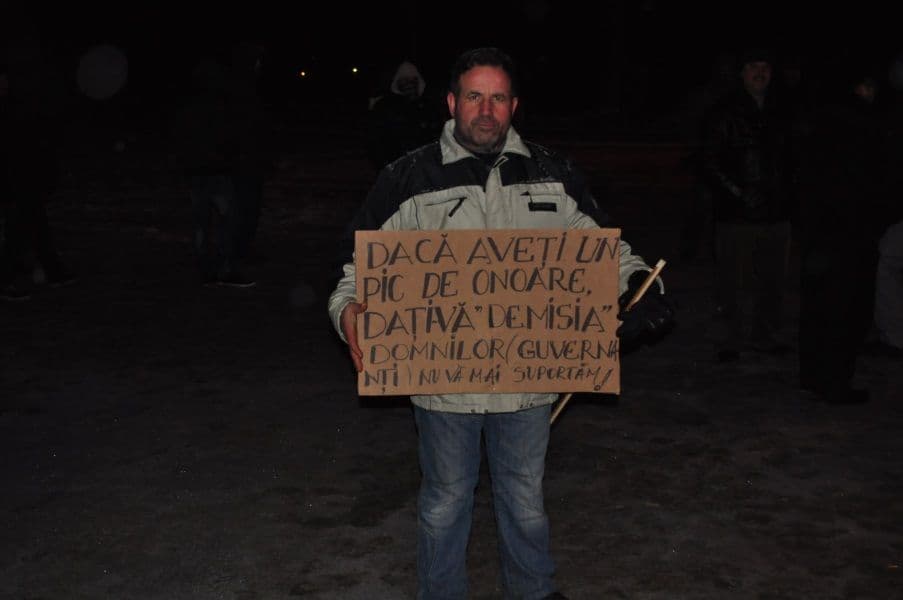 DACĂ AVEȚI UN
PIC DE ONOARE,
DAȚIVĂ "DEMISIA"
DOMNILOR (GUVERNA
NȚI) NU VĂ MAI SUPORTĂM!